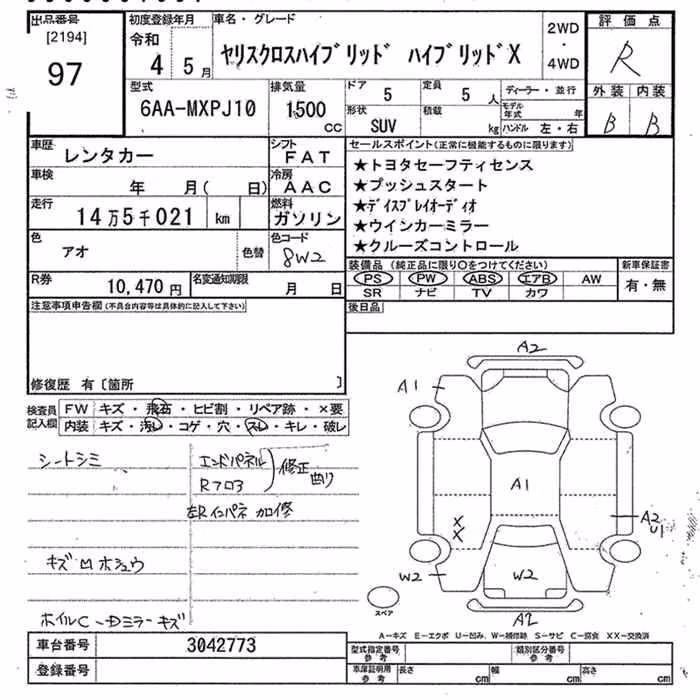 出品番号
[2194]
97
初度登録年月
令和
4 5月
車名・グレード
ヤリスクロスハイブリッド ハイブリッドX
2WD
・
4WD
評価点
R
外装 内装
B B
型式
6AA-MXPJ10
排気量
1500
CC
ドア
5
定員
5人
形状
SUV
積載
kg
ディーラー・並行
モデル年式 年
ハンドル 左・右
車歴
レンタカー
シフト
FAT
車検
年 月( 日)
冷房
AAC
走行
14万5千021 km
燃料
ガソリン
色
アオ
色替
色コード
8W2
R券
10,470円
名変通知期限
月 日
セールスポイント(正常に機能するものに限ります)
★トヨタセーフティセンス
★プッシュスタート
★ディスプレイオーディオ
★ウインカーミラー
★クルーズコントロール
装備品(純正品に限り○をつけてください)
PS PW ABS エアB AW
SR ナビ TV カワ
新車保証書
有・無
後日品
注意事項申告欄(不具合内容等は具体的に記入して下さい)
修復歴 有〔箇所 〕
検査員記入欄
FW キズ・飛石・ヒビ割・リペア跡・×要
内装 キズ・汚レ・コゲ・穴・スレ・キレ・破レ
シートシミ
エンドパネル
Rフロア
修正
曲り
左Rインパネ カロ修
キズ凹ホシュウ
ホイルC-Dミラーキズ
A2
A1
A1
A2
U1
X
X
W2
W2
A2
スペア
A―キズ E―エクボ U―凹み、W―補修跡 S―サビ C―腐食 XX―交換済
車台番号 3042773
登録番号
型式指定番号
参考
類別区分番号
参考
車庫証明用
参考
長さ cm 幅 cm 高さ cm